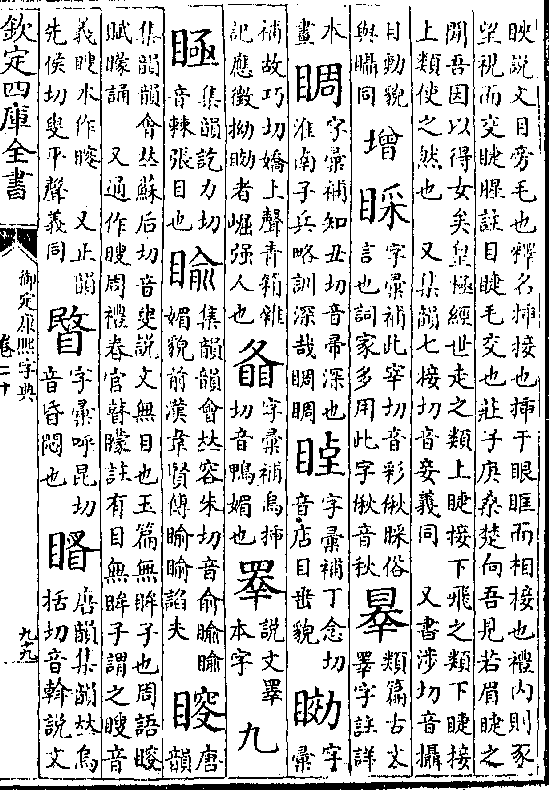 䀹說文目旁毛也釋名揷接也揷于眼眶而相接也禮內則豕
望視而交睫腥註目睫毛交也莊子庚桑楚向吾見若眉睫之
間吾因以得女矣皇極經世走之類上睫接下飛之類下睫接
上類使之然也 又集韻七接切音妾義同 又書涉切音攝
目動貌
與䁯同
增
睬
字彙補此宰切音彩偢睬俗
言也詞家多用此字偢音秋
類篇古文
睪字註詳
本
畫
睭
字彙補知丑切音帚深也
淮南子兵略訓深哉睭睭
字彙補丁念切
音店目𡸁貌
字
彙
補故巧切嬌上聲青箱雜
記應徵拗者崛强人也
字彙補烏揷
切音鴨媚也
說文睪
本字
九
集韻訖力切
音棘張目也
睮
集韻韻會𠀤容朱切音俞睮睮
媚貌前漢韋賢傳睮睮諂夫
唐
韻
集韻韻會𠀤蘇后切音叟說文無目也玉篇無眸子也周語瞍
賦矇誦 又通作瞍周禮春官瞽矇註有目無眸子謂之瞍音
義瞍本作 又正韻
先侯切叟平聲義同
字彙呼昆切
音昏悶也
唐韻集韻𠀤烏
括切音斡說文
欽定四庫全書
御定康熙字典
卷二十
九九